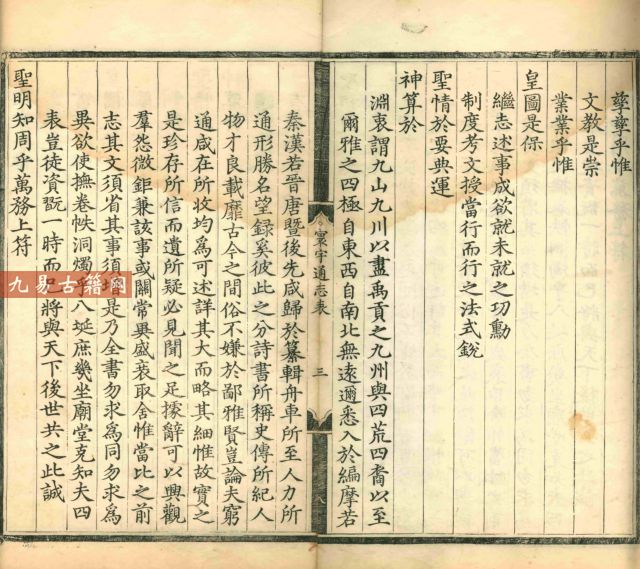 孳孳乎惟
文教是崇
業業乎惟
皇圖是保
繼志述事成欲就未就之功勳
制度考文授當行而行之法式銳
聖情於要典運
神算於
淵衷謂九山九川以盡禹貢之九州與四荒四裔以至
爾雅之四極自東西自南北無遠邇悉入於編摩若
寰宇通志表
三
秦漢若晉唐暨後先咸歸於纂輯舟車所至人力所
通形勝名望錄奚彼此之分詩書所稱史傳所紀人
物才良載靡古今之間俗不嫌於鄙雅賢豈論夫窮
通咸在所收均為可述詳其大而略其細惟故實之
是珍存所信而遺所疑必見聞之足據辭可以興觀
羣怨微鉅兼該事或關常異盛衰取舍惟當比之前
志其文須省其事須增是乃全書勿求為同勿求為
異欲使撫卷帙洞燭乎八埏庶幾坐廟堂克知夫四
表豈徒資翫一時而已將與天下後世共之此誠
聖明知周乎萬務上符
九易古籍网